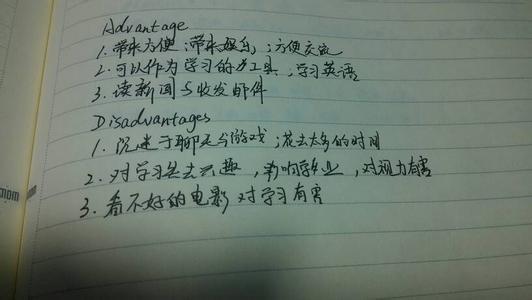 Advantage
1. 带来方便;带来娱乐;方便交流
2. 可以作为学习的工具,学习英语
3. 读新闻与收发邮件
Disadvantages
1. 沉迷于聊天与游戏;花去太多的时间
2. 对学习失去兴趣,影响学业,对视力有害
3. 看不好的电影对学习有害